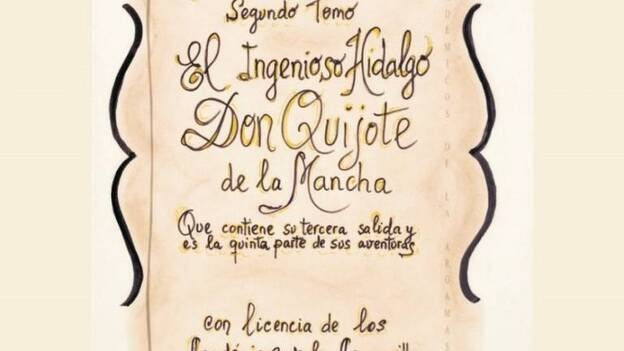 Segundo Tomo
El Ingenioso Hidalgo
Don Quijote
de la Mancha
Que contiene su tercera salida y
es la quinta parte de sus aventuras
con licencia de los
DEMICOS DE LA ARGAMAS